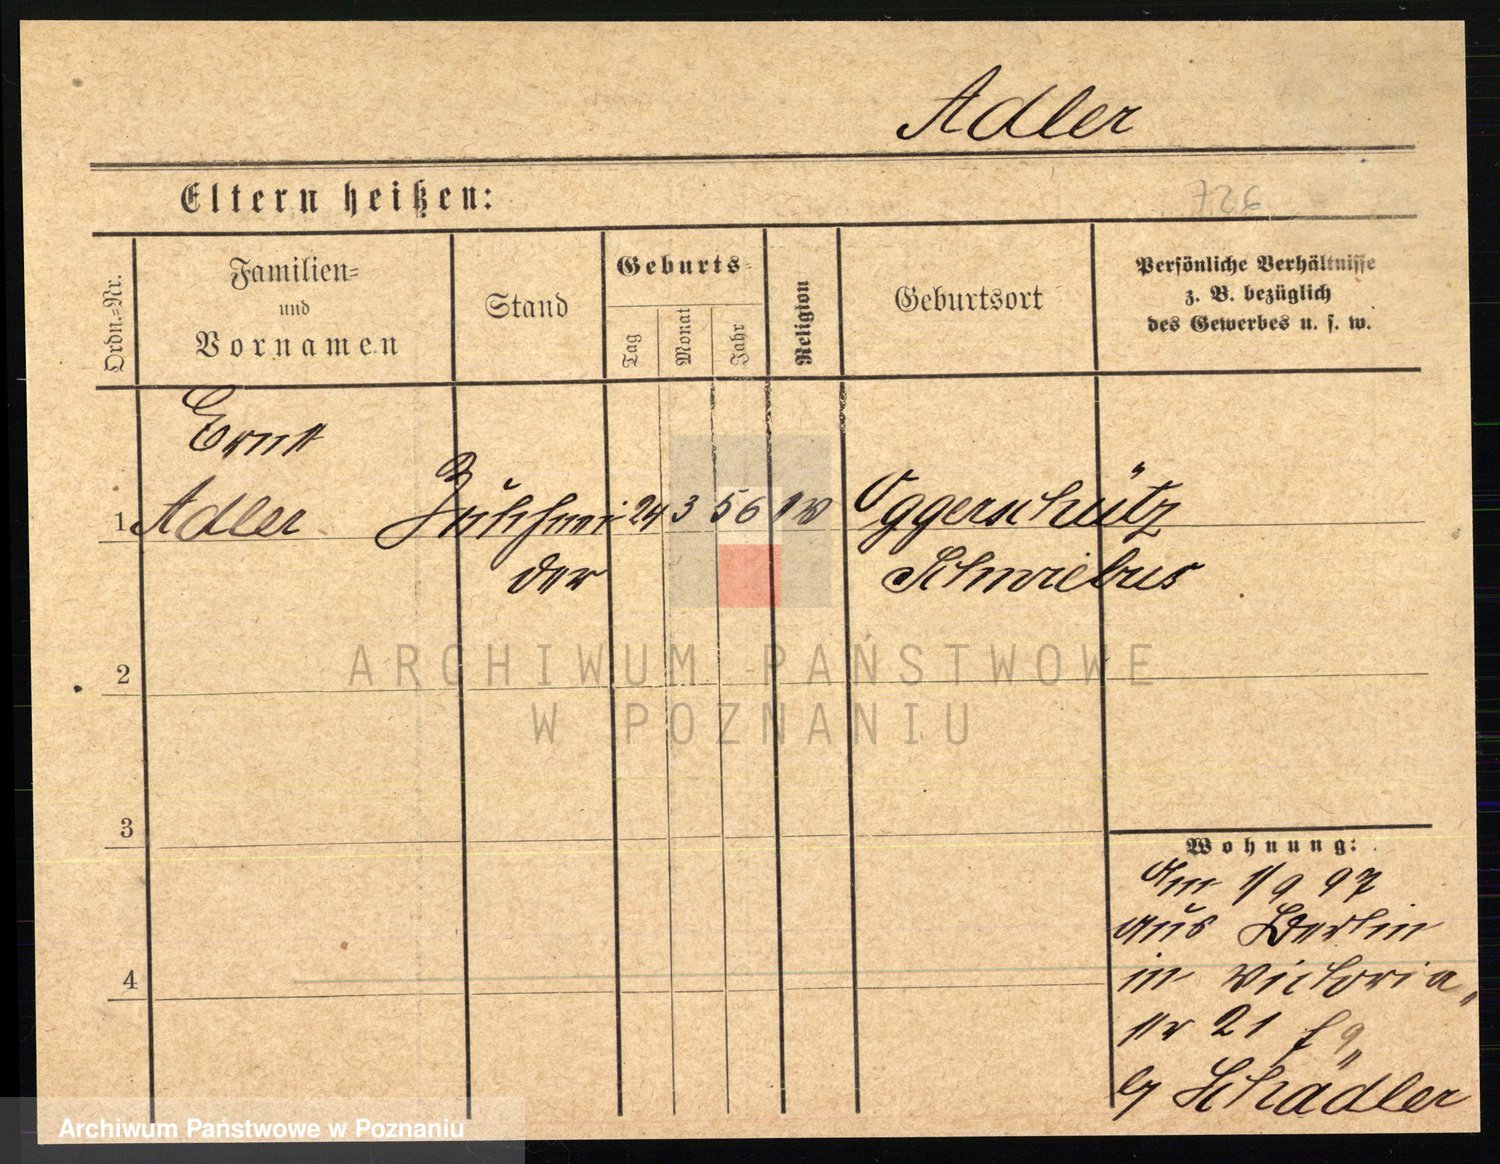 Adler
Eltern heißen:
327
Ordn.-Nr.
Familien-
und
Vornamen
Stand
Geburts-
Tag
Monat
Jahr
Religion
Geburtsort
Persönliche Verhältnisse
z. B. bezüglich
des Gewerbes u. s. w.
Ernst
1 Adler Zuschnei 24 3 56 Oggerschütz
der Schwiebus
2
3
4
Wohnung:
Am 1/9 97
aus Berlin
in Victoria
str 21
Schädler
ARCHIWUM PAŃSTWOWE
W POZNANIU
Archiwum Państwowe w Poznaniu